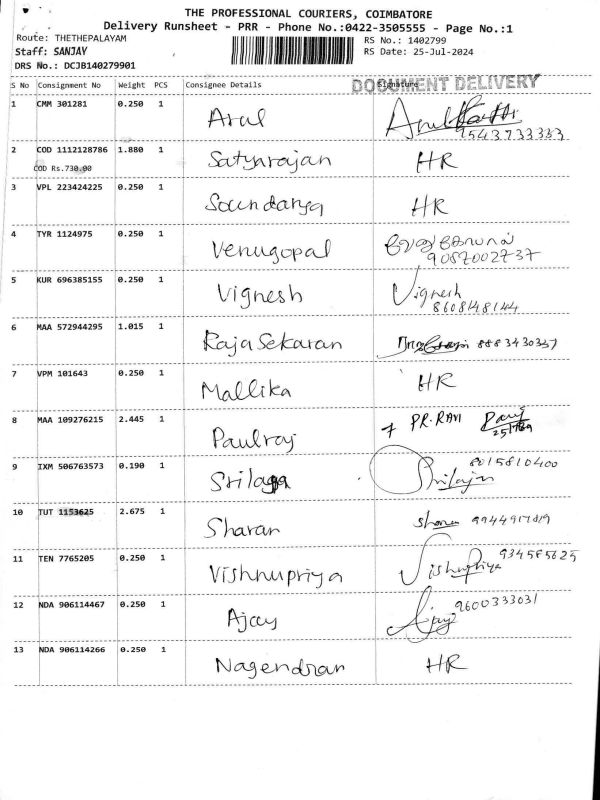 THE PROFESSIONAL COURIERS, COIMBATORE
Delivery Runsheet - PRR - Phone No.:0422-3505555 - Page No.:1
Route: THETHEPALAYAM
RS No.: 1402799
Staff: SANJAY
RS Date: 25-Jul-2024
DRS No.: DCJB140279901
DOCUMENT DELIVERY
S No Consignment No Weight PCS Consignee Details Signature
1 CMM 301281 0.250 1 Arul
9543733333
2 COD 1112128786 1.880 1 Satyarajan HR
COD Rs.730.00
3 VPL 223424225 0.250 1 Soundarya HR
4 TYR 1124975 0.250 1 Venugopal வேணுகோபால்
9087002737
5 KUR 696385155 0.250 1 Vignesh Vignesh
8608148144
6 MAA 572944295 1.015 1 RajaSekaran 8883430357
7 VPM 101643 0.250 1 Mallika HR
8 MAA 109276215 2.445 1 Paulraj PR.RAVI
9 IXM 506763573 0.190 1 8015810400
10 TUT 1153625 2.675 1 Sharan 9944917819
11 TEN 7765205 0.250 1 Vishnupriya Vishnupriya 934585625
12 NDA 906114467 0.250 1 Ajay Ajay 9600333031
13 NDA 906114266 0.250 1 Nagendran HR